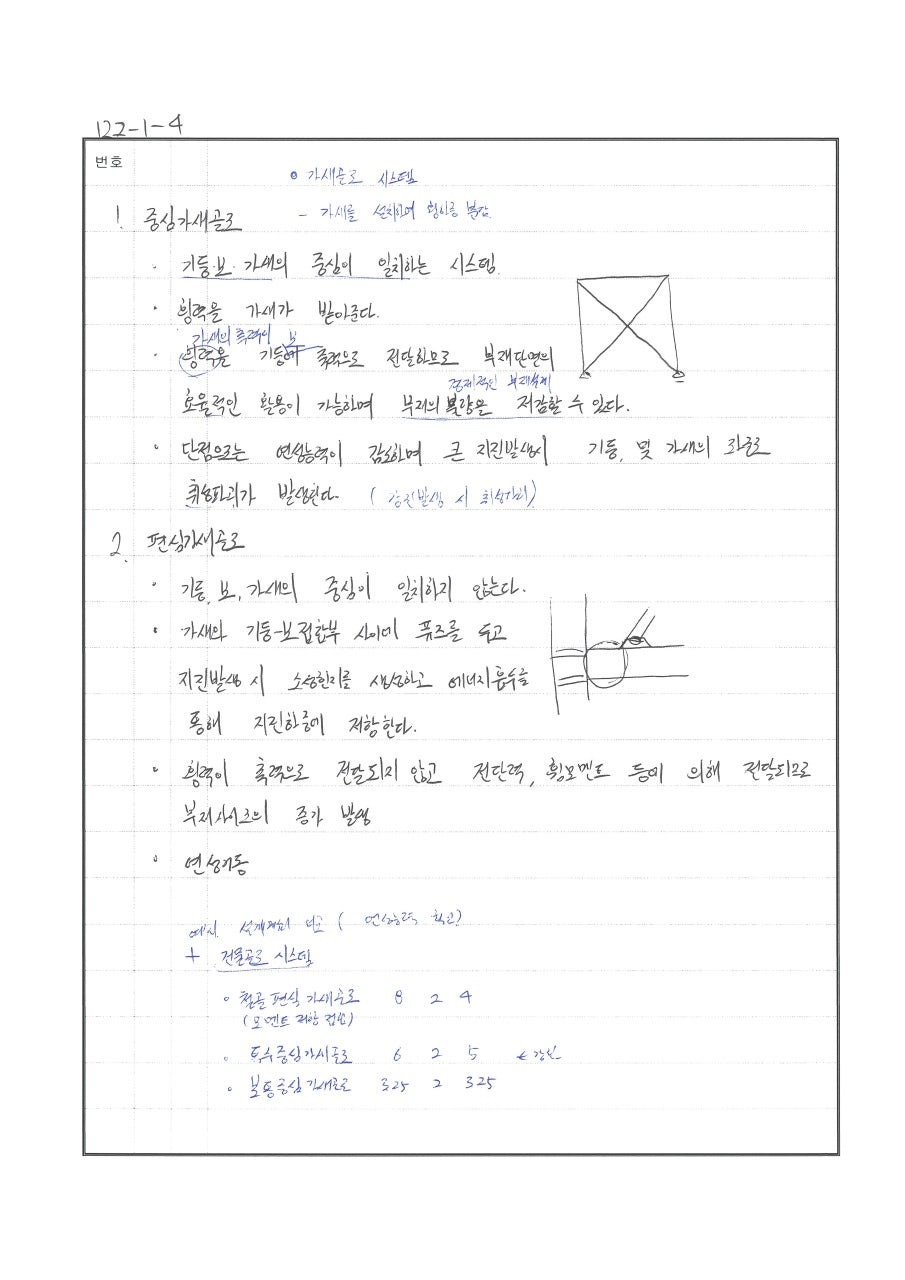 122-1-4
번호
• 가새골조 시스템
1. 중심가새골조
- 가새를 설치하여 횡하중 분담
· 기둥·보·가새의 중심이 일치하는 시스템
· 횡력을 가새가 받아준다.
가새의 축력이 보
· 횡력을 기둥에 축력으로 전달하므로 부재단면의
경제적인 부재설계
효율적인 활용이 가능하며 부재의 물량을 저감할 수 있다.
· 단점으로는 연성능력이 감소하며 큰 지진발생시 기둥, 및 가새의 좌굴로
취성파괴가 발생한다. (강진발생 시 취성파괴)
2. 편심가새골조
· 기둥, 보, 가새의 중심이 일치하지 않는다.
· 가새와 기둥-보접합부 사이에 퓨즈를 두고
지진발생 시 소성힌지를 생성하고 에너지흡수를
통해 지진하중에 저항한다.
· 횡력이 축력으로 전달되지 않고 전단력, 휨모멘트 등에 의해 전달되므로
부재사이즈의 증가 발생
· 연성거동
설계 (연성능력 확보)
+ 건물골조 시스템
· 철골 편심가새골조 8 2 4
(모멘트 저항 접합)
· 특수중심가새골조 6 2 5
· 보통중심가새골조 3.25 2 3.25